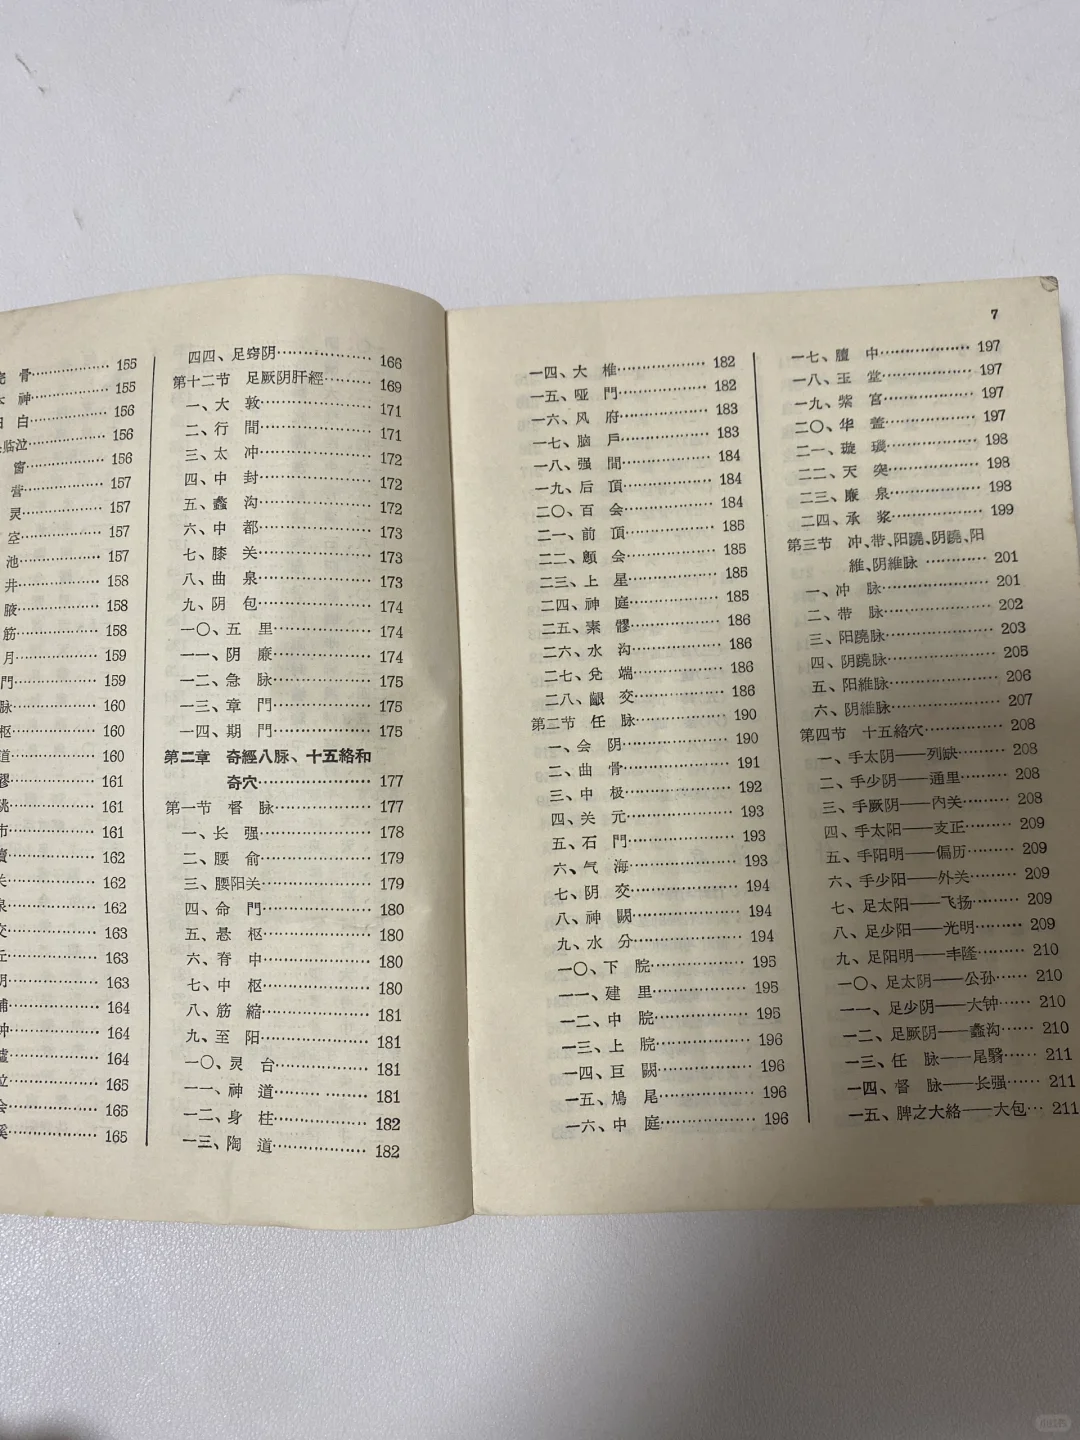 骨………………155
神………………155
白………………156
临泣………………156
窗………………156
营………………157
灵………………157
空………………157
池………………157
井………………158
腋………………158
筋………………158
月………………159
門………………159
脉………………160
枢………………160
道………………160
………………161
………………161
市………………161
………………162
………………162
………………162
………………163
………………163
………………163
………………164
………………164
………………164
………………165
………………165
………………165
四四、足窍阴………………166
第十二节 足厥阴肝經………169
一、大 敦………………171
二、行 間………………171
三、太 冲………………172
四、中 封………………172
五、蠡 沟………………172
六、中 都………………173
七、膝 关………………173
八、曲 泉………………173
九、阴 包………………174
一〇、五 里………………174
一一、阴 廉………………174
一二、急 脉………………175
一三、章 門………………175
一四、期 門………………175
第二章 奇經八脉、十五絡和
奇穴………………177
第一节 督 脉………………177
一、长 强………………178
二、腰 俞………………179
三、腰阳关………………179
四、命 門………………180
五、悬 枢………………180
六、脊 中………………180
七、中 枢………………180
八、筋 縮………………181
九、至 阳………………181
一〇、灵 台………………181
一一、神 道………………181
一二、身 柱………………182
一三、陶 道………………182
7
一四、大 椎………………182
一五、哑 門………………182
一六、风 府………………183
一七、脑 戶………………183
一八、强 間………………184
一九、后 頂………………184
二〇、百 会………………184
二一、前 頂………………185
二二、顖 会………………185
二三、上 星………………185
二四、神 庭………………185
二五、素 髎………………186
二六、水 沟………………186
二七、兌 端………………186
二八、齦 交………………186
第二节 任 脉………………190
一、会 阴………………190
二、曲 骨………………191
三、中 极………………192
四、关 元………………193
五、石 門………………193
六、气 海………………193
七、阴 交………………194
八、神 闕………………194
九、水 分………………194
一〇、下 脘………………195
一一、建 里………………195
一二、中 脘………………195
一三、上 脘………………196
一四、巨 闕………………196
一五、鳩 尾………………196
一六、中 庭………………196
一七、膻 中………………197
一八、玉 堂………………197
一九、紫 宮………………197
二〇、华 盖………………197
二一、璇 璣………………198
二二、天 突………………198
二三、廉 泉………………198
二四、承 浆………………199
第三节 冲、带、阳蹺、阴蹺、阳
維、阴維脉…………201
一、冲 脉………………201
二、带 脉………………202
三、阳蹺脉………………203
四、阴蹺脉………………205
五、阳維脉………………206
六、阴維脉………………207
第四节 十五絡穴…………208
一、手太阴——列缺………208
二、手少阴——通里………208
三、手厥阴——內关………208
四、手太阳——支正………209
五、手阳明——偏历………209
六、手少阳——外关………209
七、足太阳——飞扬………209
八、足少阳——光明………209
九、足阳明——丰隆………210
一〇、足太阴——公孙……210
一一、足少阴——大钟……210
一二、足厥阴——蠡沟……210
一三、任 脉——尾翳……211
一四、督 脉——长强……211
一五、脾之大絡——大包…211